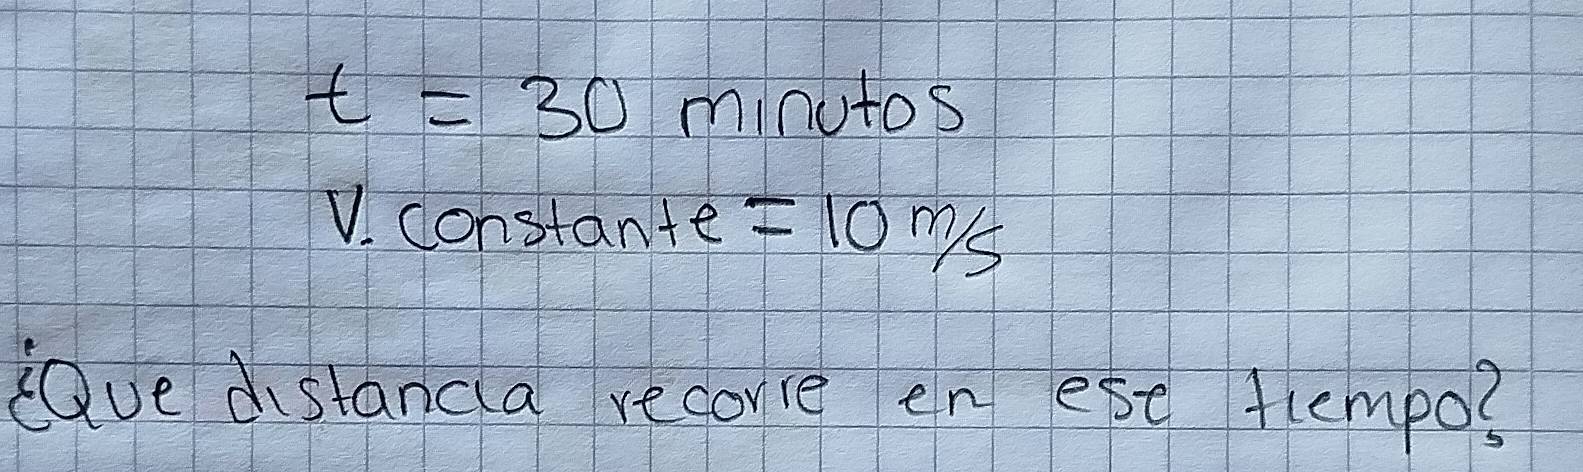 t = 30 minutos
V. constante = 10 m/s
¿Que distancia recorre en ese tiempo?